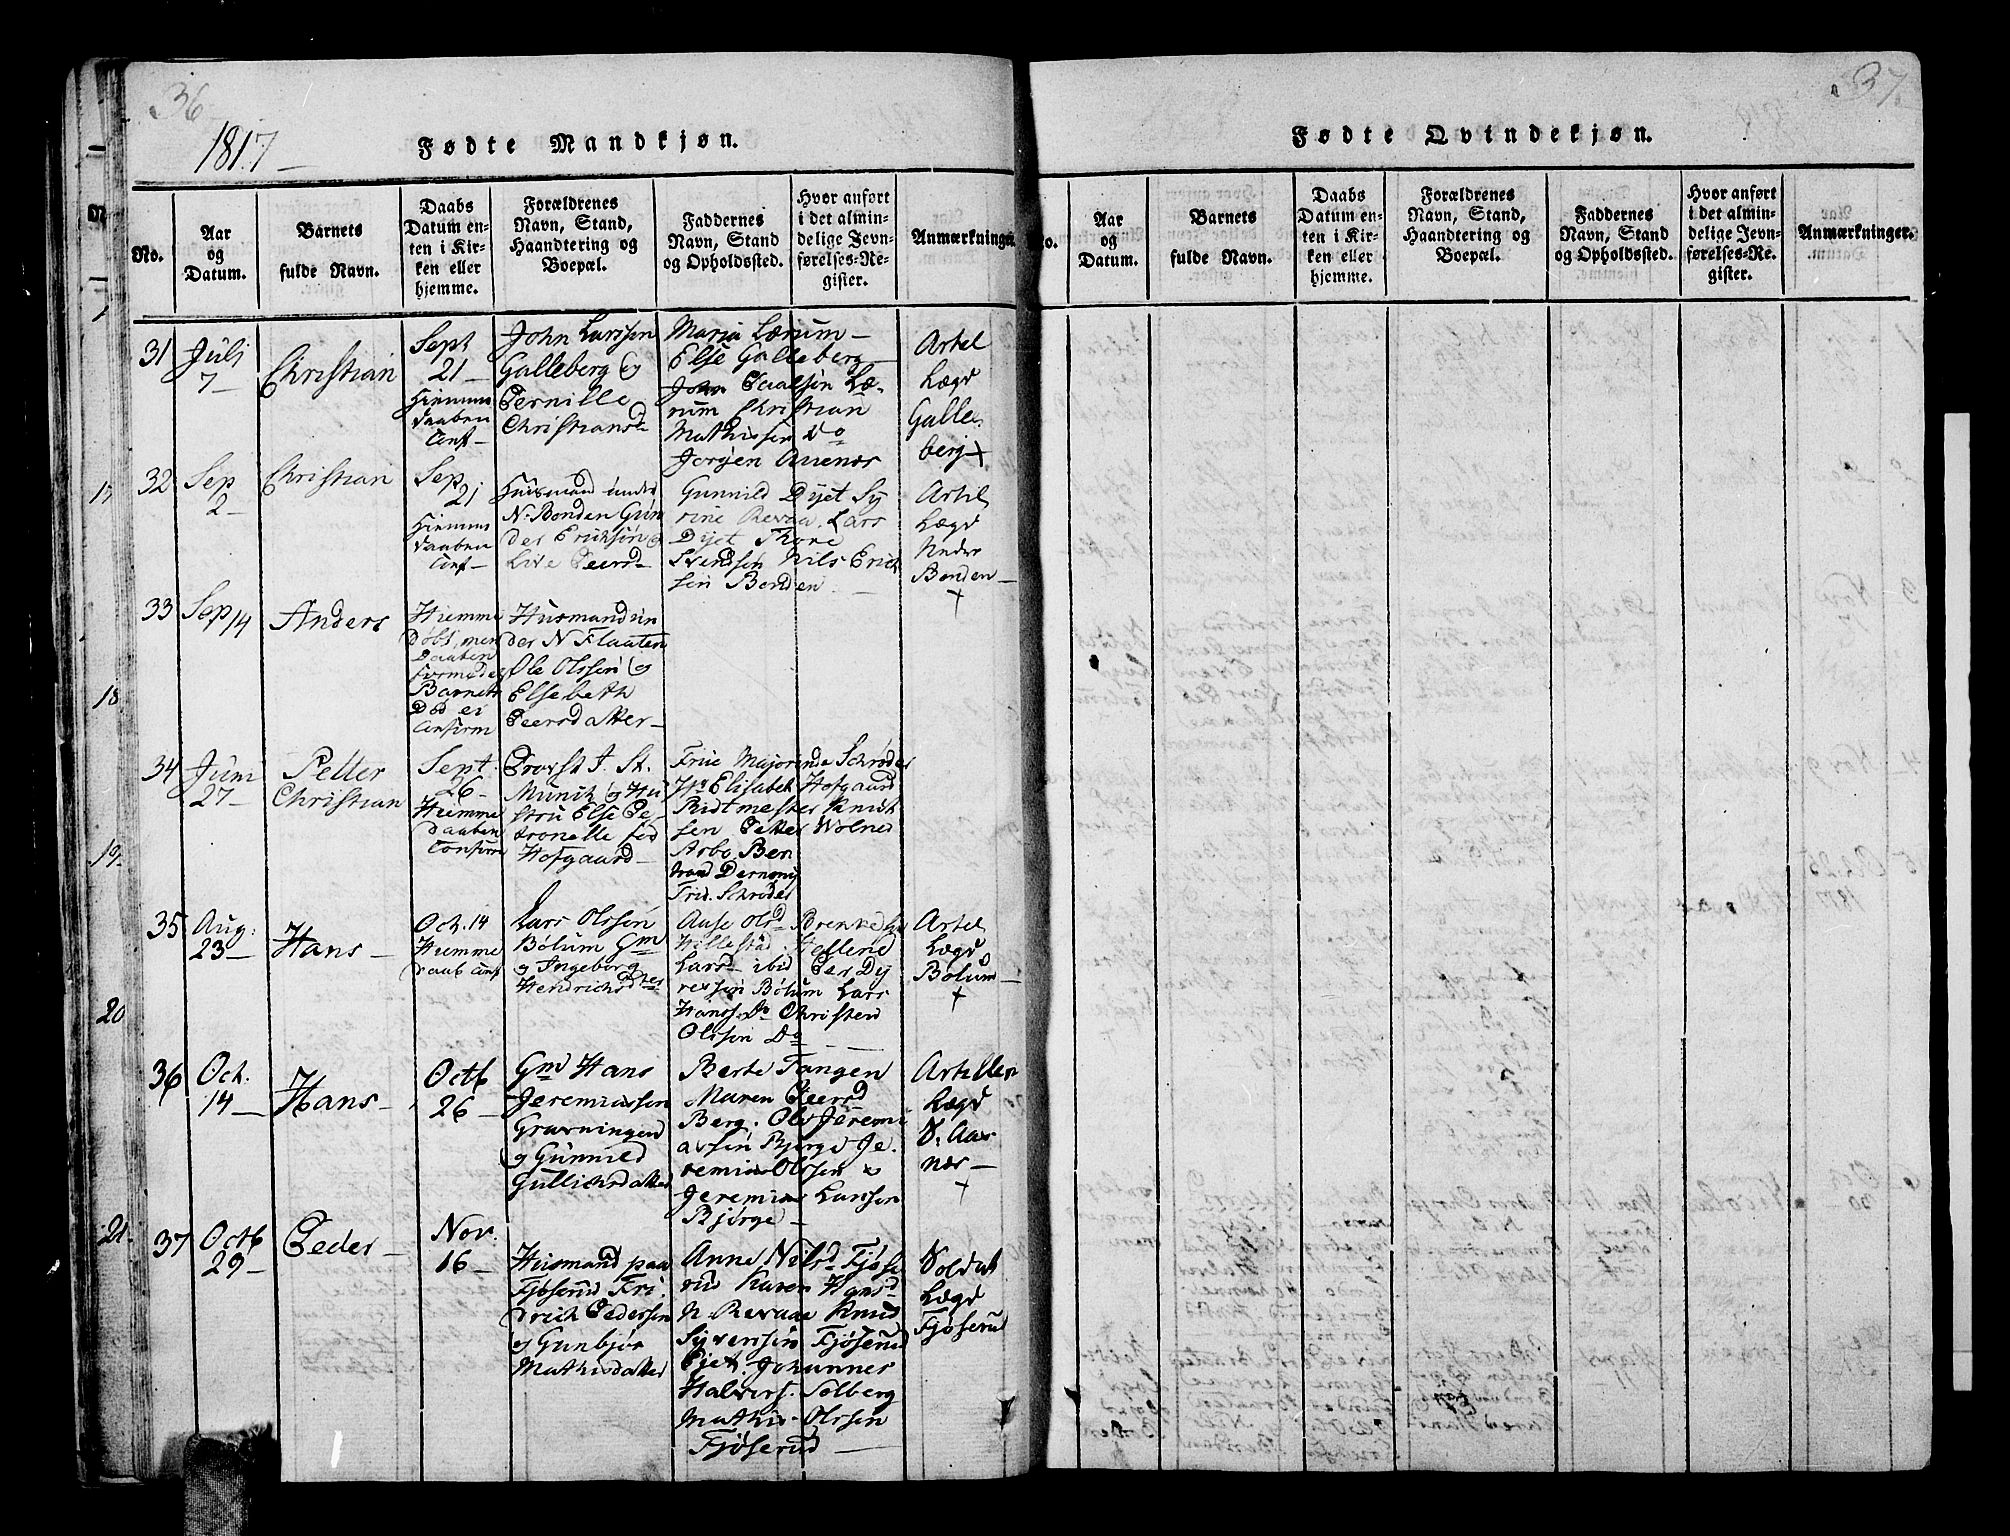 36
1817
Fødte Mandkjøn.
No.
Aar
og
Datum.
Barnets
fulde Navn.
Daabs
Datum en-
ten i Kir-
ken eller
hjemme.
Forældrenes
Navn, Stand,
Haandtering og
Boepæl.
Faddernes
Navn, Stand
og Opholdssted.
Hvor anført
i det almin-
delige Jevn-
førelses-Re-
gister.
Anmærkninger.
31
Juli
7
Christian
Sept
21
Hiemme
daaben
Conf
John Larssen
Galleberg og
Pernille
Christiansd
Maria Lærum
Else Galleberg
John Paalsen Læ-
rum Christian
Mathissen Do
Jørgen
Artel
Lægd
Galle
berg
32
Sep
2
Christian
Sep
21
Hiemme
daaben
Conf
Huusmand under
N. Bonden Gun
der Erichsen og
Live Peersd
Gunnild Dyet Sy
rine Revaa. Lars
Dyet Thore
Svendsen Nils Erich
sen Bonden
Artel
Lægd
Nedre
Bonden
33
Sep 14
Anders
Hiemme
døbt, men
Daaben
formedes
Barnets
Død ei
Confirm
Husmand un
der N Flaaten
Ole Olssen og
Elsebeth
Peersdatter
34
Juni
27
Petter
Christian
Sept.
26
Hiemme
daaben
Confirm
Provst J. St.
Munch og Hu
stru Else Pe-
tronelle fød
Hofgaard
Frue Majorinde Schrøder
Elisabet Hofgaard
Ridtmester Knud
sen Petter
Arbo
Frid. Schrøder
35
Aug:
23
Hans
Oct. 14
Hiemme
daab Conf
Lars Olssen
Bølum Gm
og Ingeborg
Hendrichsd
Aase Olsd
Hillestad.
Larsd ibid Per Dy
ressen Bølum Lars
Hanssen Do Christen
Olssen Do
Artel
Lægd
Bølum
36
Oct.
14
Hans
Octb
26
Gm Hans
Jeremiassen
Gravningen
og Gunnild
Gullichsdatter
Berte Tangen
Maren Peersd
Berg. Ole Jeremi
assen Bjørge Je-
remias Olssen
Jeremias Larssen
Bjørge
Artiller
Lægd
37
Octb
29
Peder
Nov.
16
Huusmand paa
Fjøserud Fri-
drich Pedersen
og Gunbjør
Mathisdatter
Anne Nilsd Fjøse
rud Karen Hansd
N. Revaae Knud
Syvertsen Fjøserud
Ejet. Johannes
Halvors. Solberg
Mathis Olssen
Fjøserud
Soldat
Lægd
Fjøserud
17
18
19
20
21
37
Fødte Qvindekjøn.
No.
Aar
og
Datum.
Barnets
fulde Navn.
Daabs
Datum en-
ten i Kir-
ken eller
hjemme.
Forældrenes
Navn, Stand,
Haandtering og
Boepæl.
Faddernes
Navn, Stand
og Opholdssted.
Hvor anført
i det almin-
delige Jevn-
førelses-Re-
gister.
Anmærkninger.